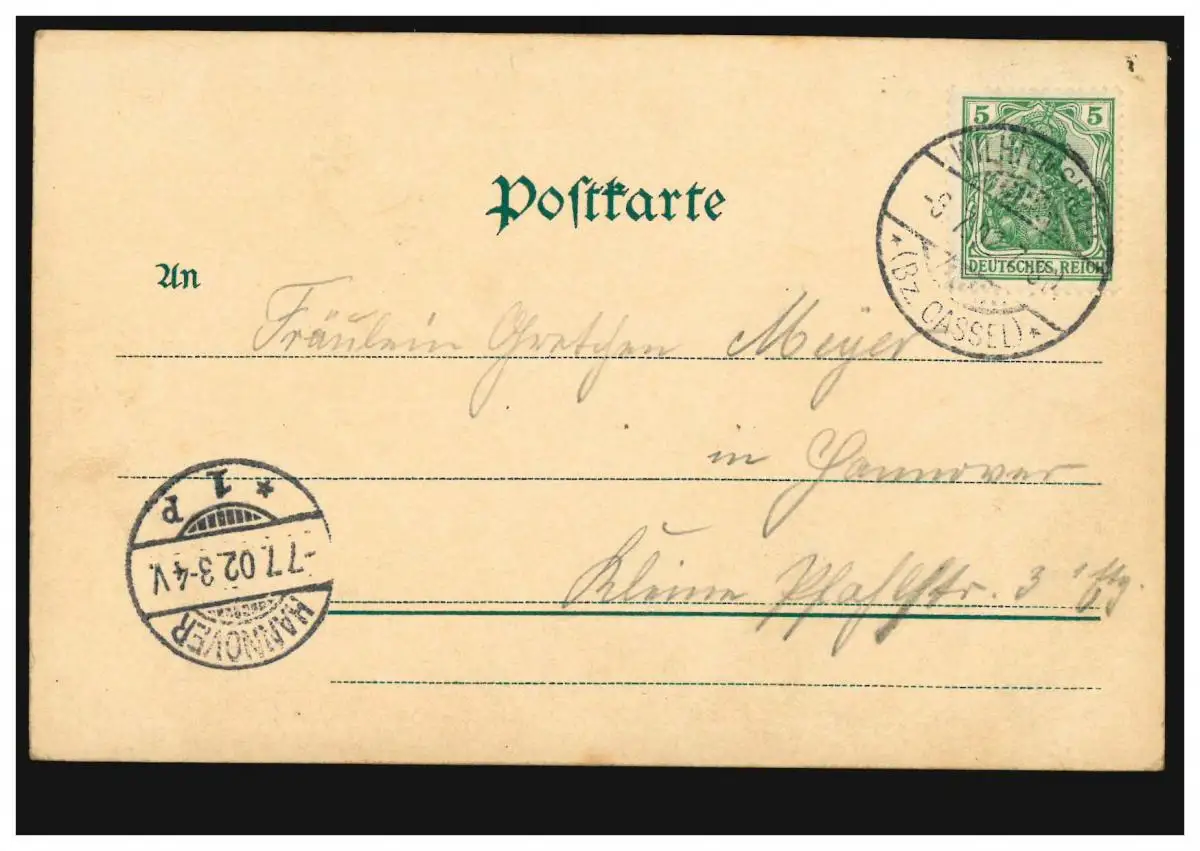 5 5
DEUTSCHES REICH
WILHELMSHÖHE
* (Bz. CASSEL) *
Postkarte
An
Fräulein Gretchen Meyer
in Hannover
Kleine Pfahlstr. 3
* 1 P
-7.7.02.3-4 V.
HANNOVER